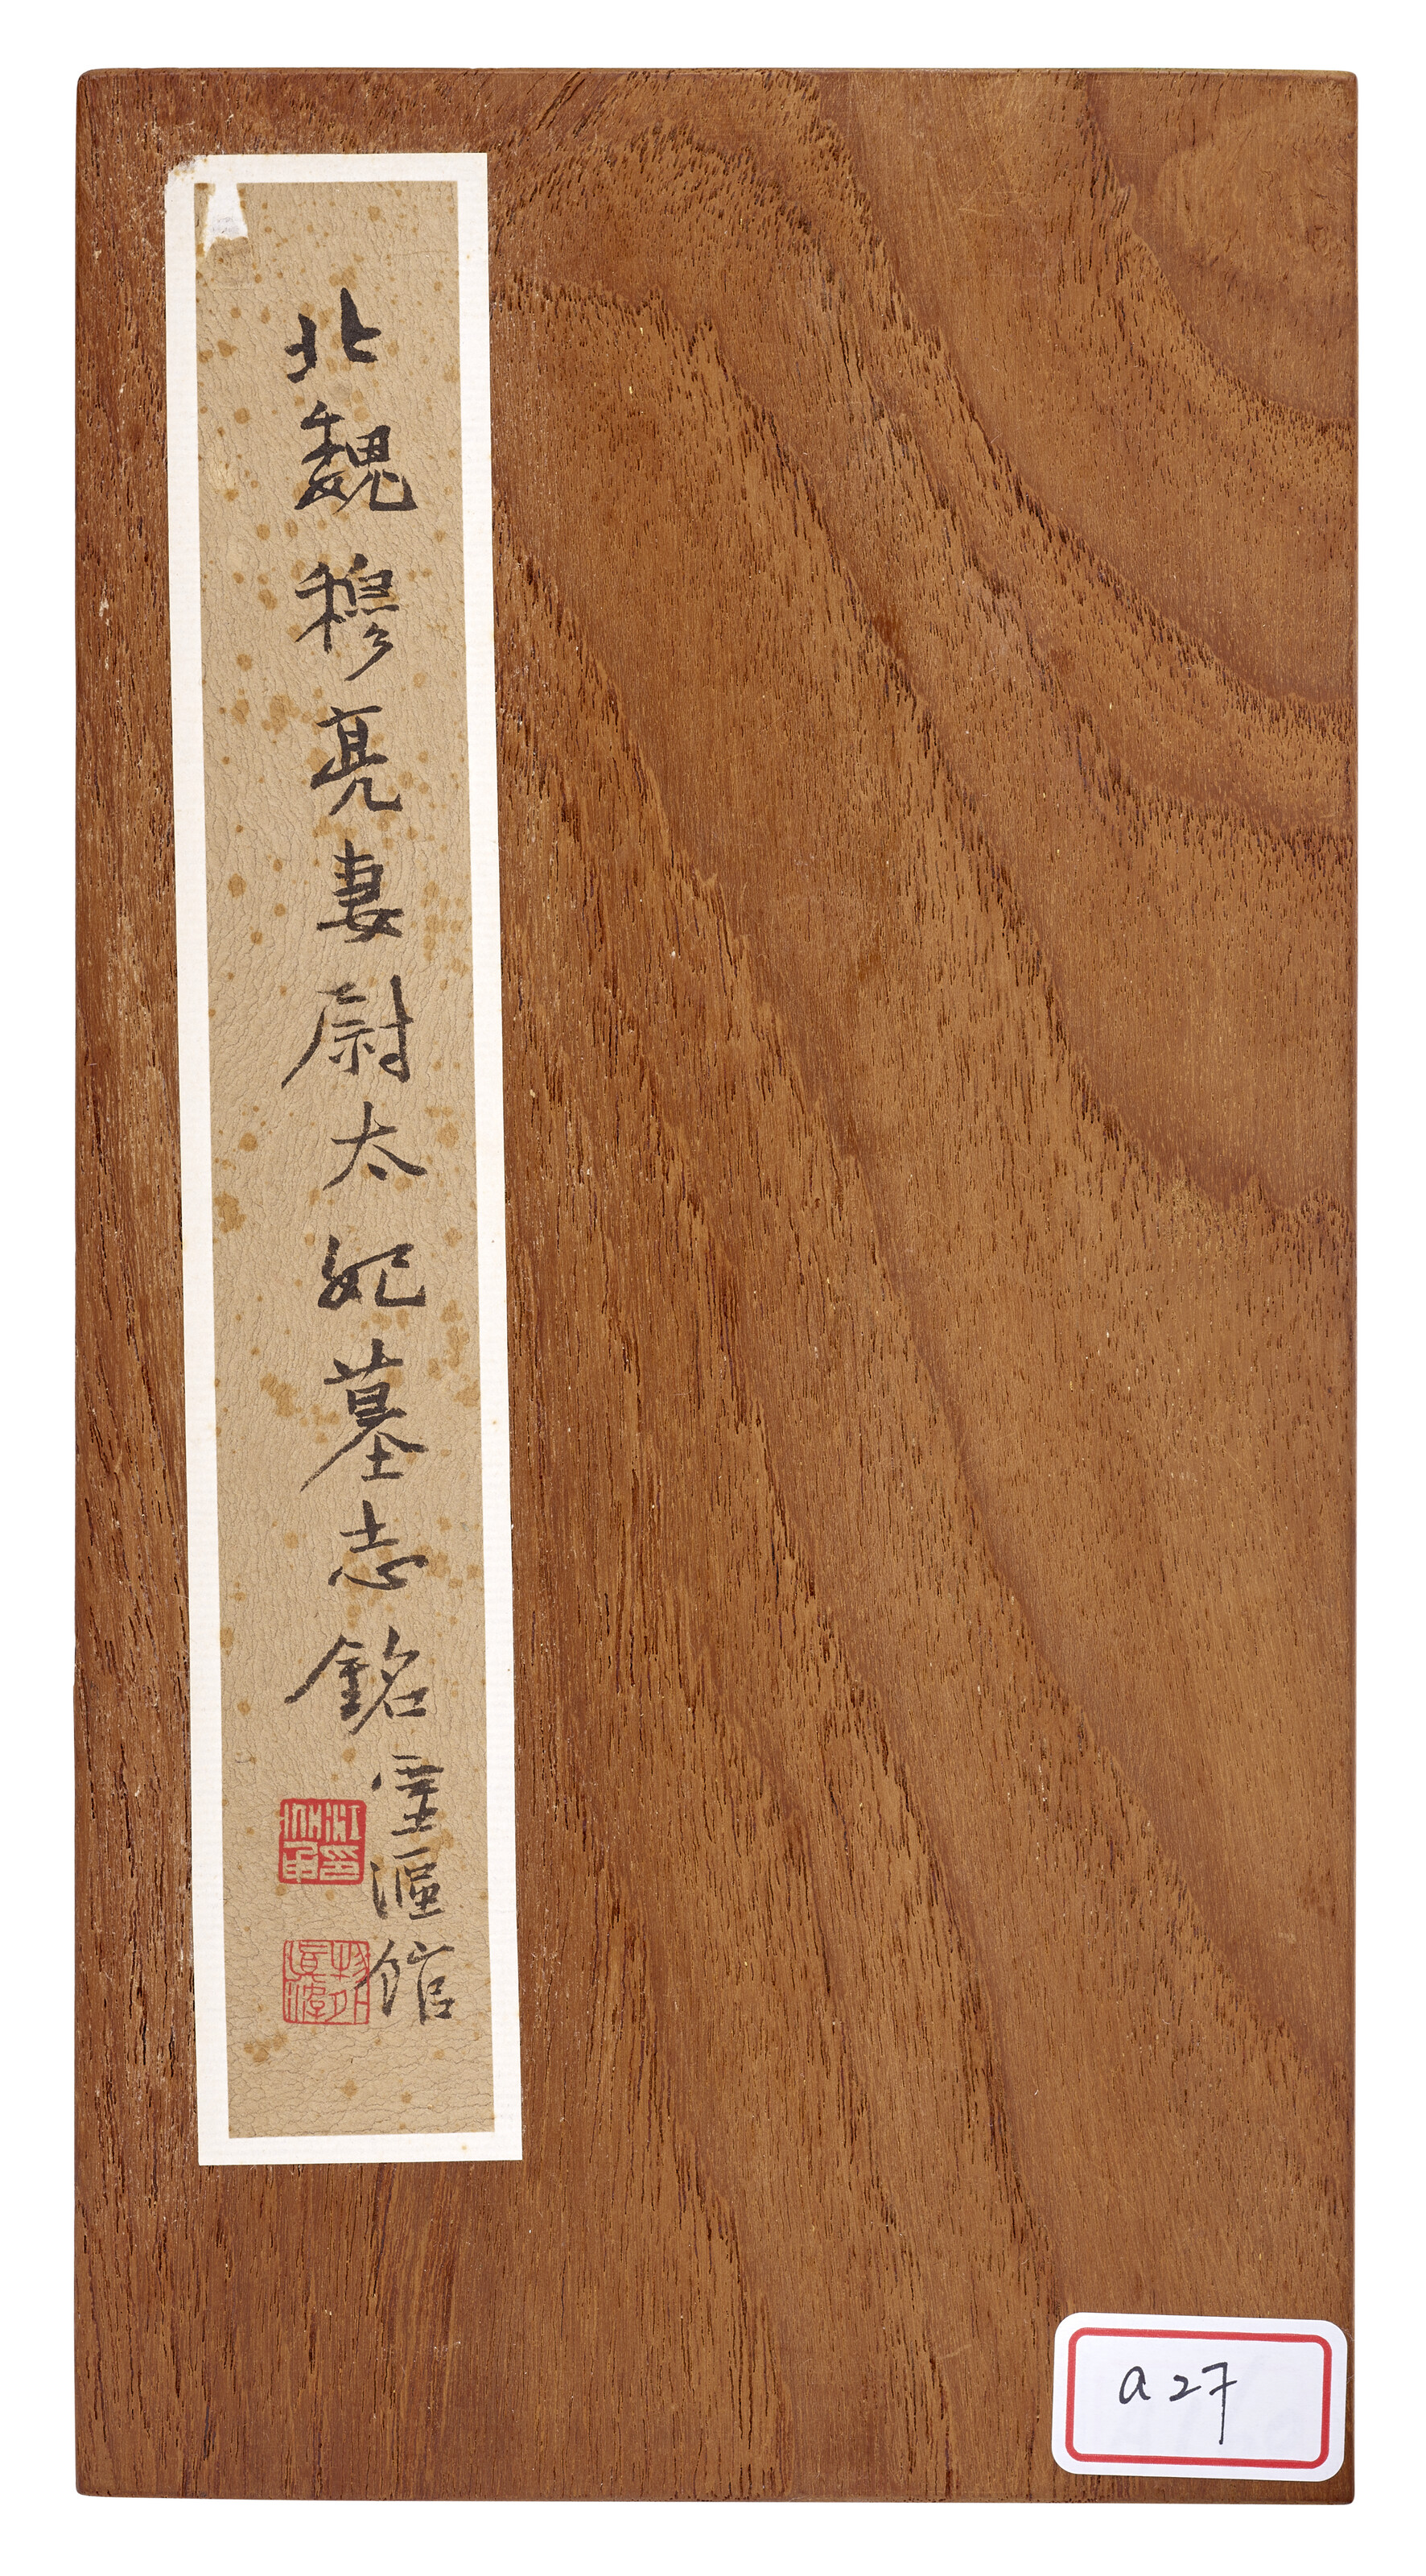 北魏穆亮妻尉太妃墓志銘
館
a27